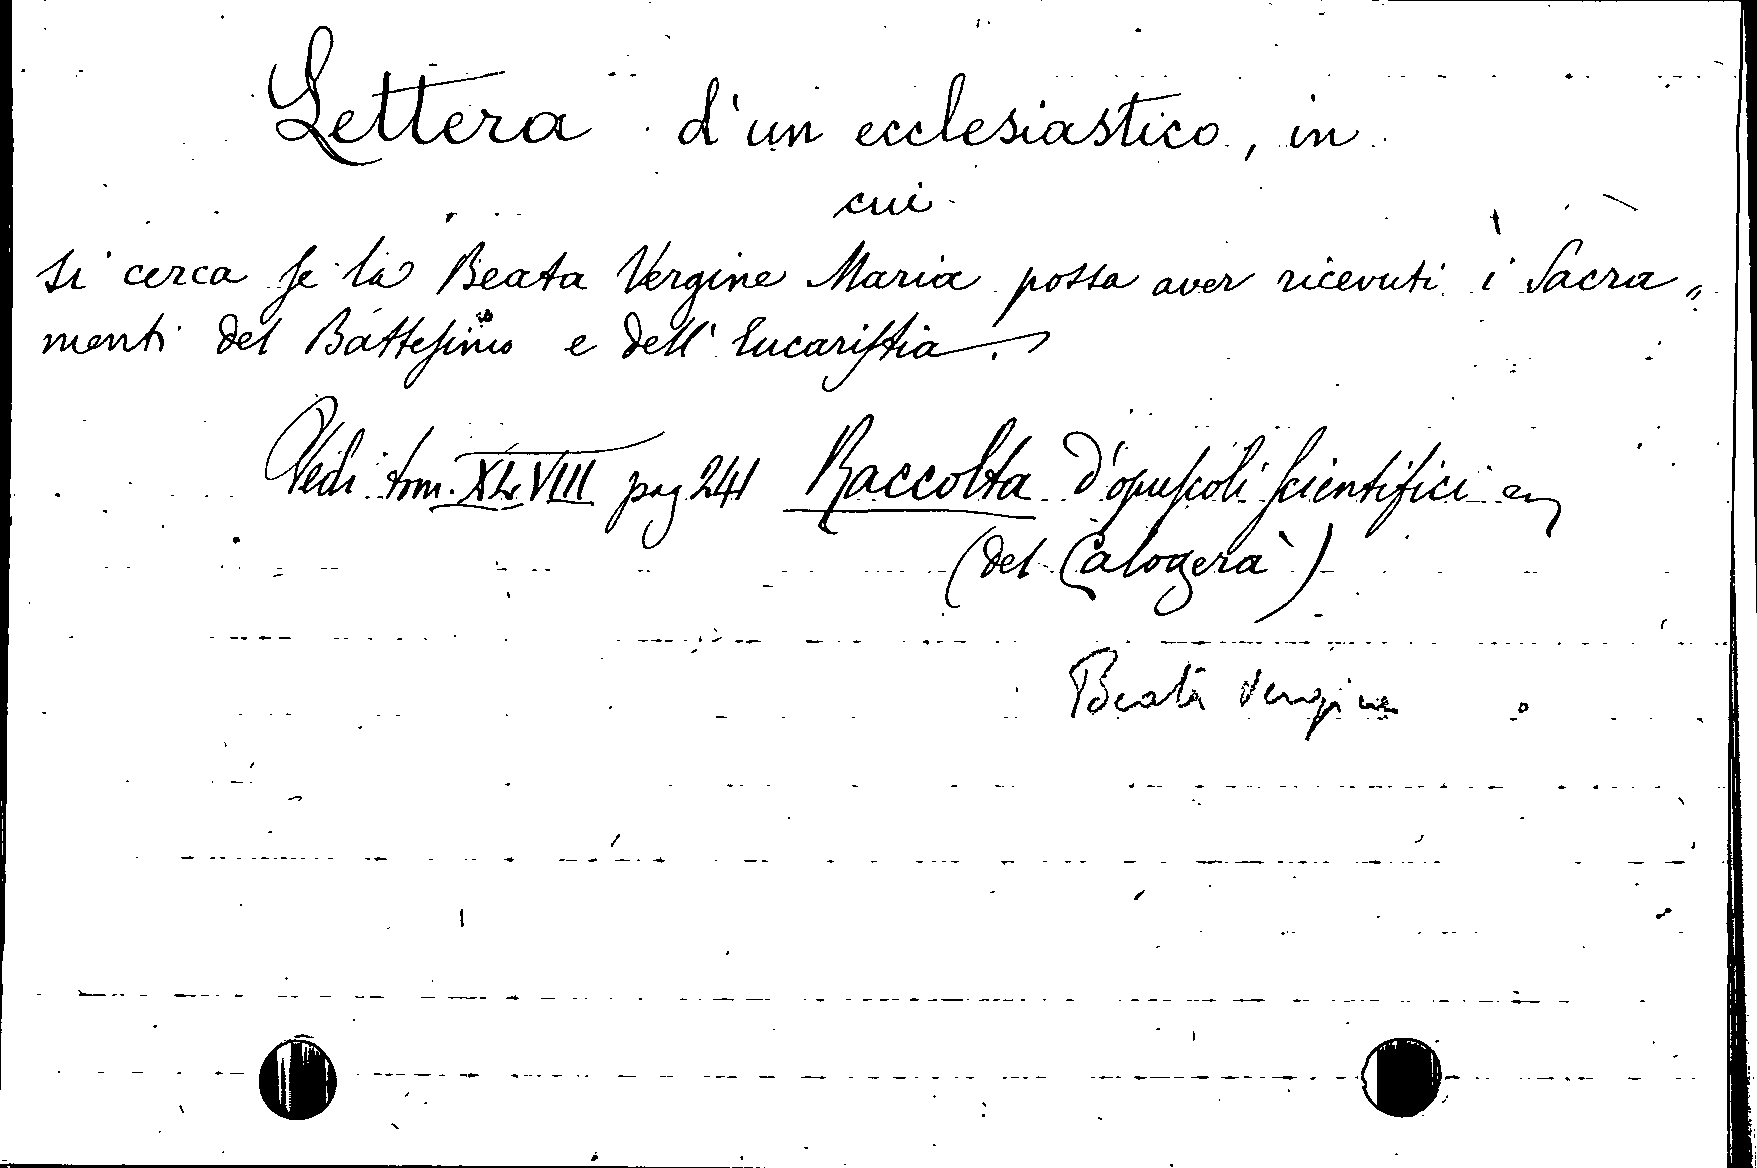 Lettera d'un ecclesiastico, in
cui
si cerca se la Beata Vergine Maria possa aver ricevuti i Sacra„
menti del Battesimo e dell'Eucaristia.
Vedi tom. XLVIII pag 241 Raccolta d'opuscoli scientifici
(del Calogerà)
Beata Vergine